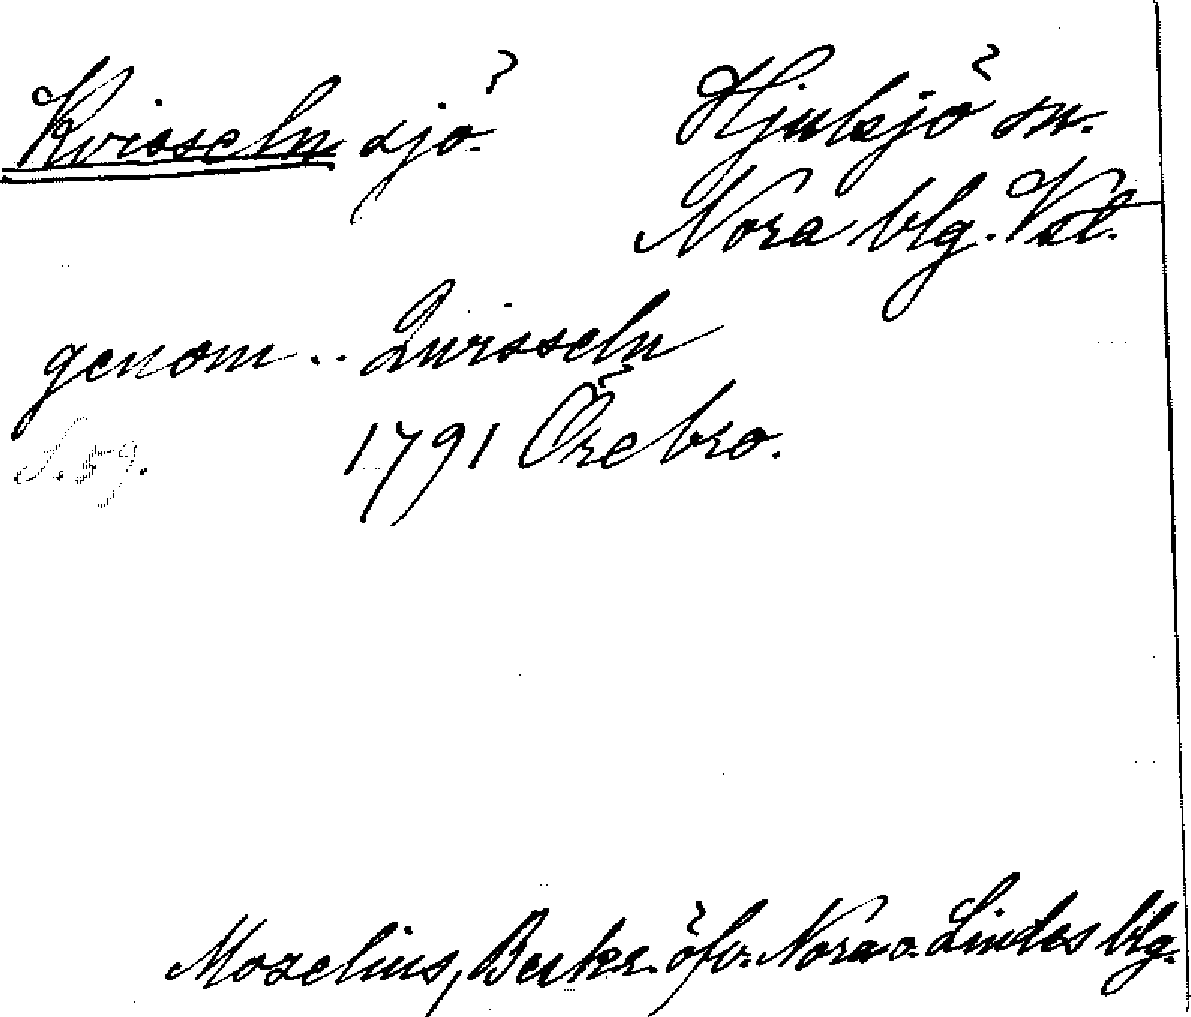 Kvisseln sjö. Hjulsjö sn.
Nora blg. Vstl.
genom .. Qvisseln
S. 59. 1791 Örebro.
Mozelius, Beskr. öfv. Nora o. Lindes blg.